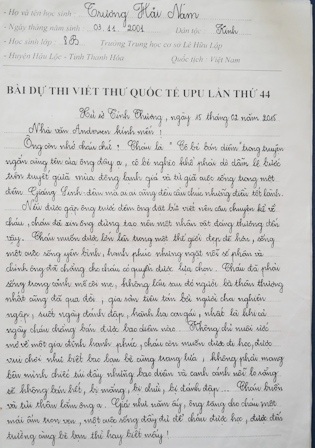 Họ và tên học sinh : Trương Hải Nam
Ngày tháng năm sinh : 03.11.2001 Dân tộc : Kinh
Học sinh lớp : 8B Trường Trung học cơ sở Lê Hữu Lập
Huyện Hậu Lộc - Tỉnh Thanh Hóa Quốc tịch : Việt Nam
BÀI DỰ THI VIẾT THƯ QUỐC TẾ UPU LẦN THỨ 44
Xứ sở Tình Thương, ngày 15 tháng 02 năm 2015
Nhà văn Andersen kính mến !
Ông còn nhớ cháu chứ ? Cháu là " Cô bé bán diêm " trong truyện
ngắn cùng tên của ông đây ạ, cô bé nghèo khổ phải đi bán lẻ
trên tuyết giữa mùa đông lạnh giá và từ giã cuộc sống trong một
đêm Giáng Sinh đêm mà ai ai cũng đều cầu chúc những điều tốt lành.
Nếu được gặp ông trước đêm ông đặt bút viết nên câu chuyện kể về
cháu, cháu sẽ xin ông đừng tạo nên một nhân vật đáng thương đến
vậy. Cháu muốn được lớn lên trong một thế giới đẹp đẽ hơn, sống
một cuộc sống yên bình, hạnh phúc nhưng ngặt nỗi số phận và
chính ông đã chẳng cho cháu có quyền được lựa chọn. Cháu đã phải
sống trong cảnh mồ côi mẹ, không lâu sau đó người bà thân thương
nhất cũng đã qua đời, gia sản tiêu tán bởi người cha nghiện
ngập, suốt ngày đánh đập, hành hạ con gái, nhất là khi cả
ngày cháu chẳng bán được bao diêm nào. Không chỉ nuôi ước
mơ về một gia đình hạnh phúc, cháu còn muốn được đi học, được
vui chơi như biết bao bạn bè cùng trang lứa, không phải mang
bên mình chiếc túi đầy những bao diêm và canh cánh nỗi lo rằng
sẽ không bán hết, bị mắng, bị chửi, bị đánh đập... Cháu buồn
và tủi thân lắm ông ạ. Giá như năm ấy, ông tặng cho cháu một
mái ấm trọn vẹn, một cuộc sống đầy đủ để cháu được học, được đến
trường cùng bè bạn thì hay biết mấy !